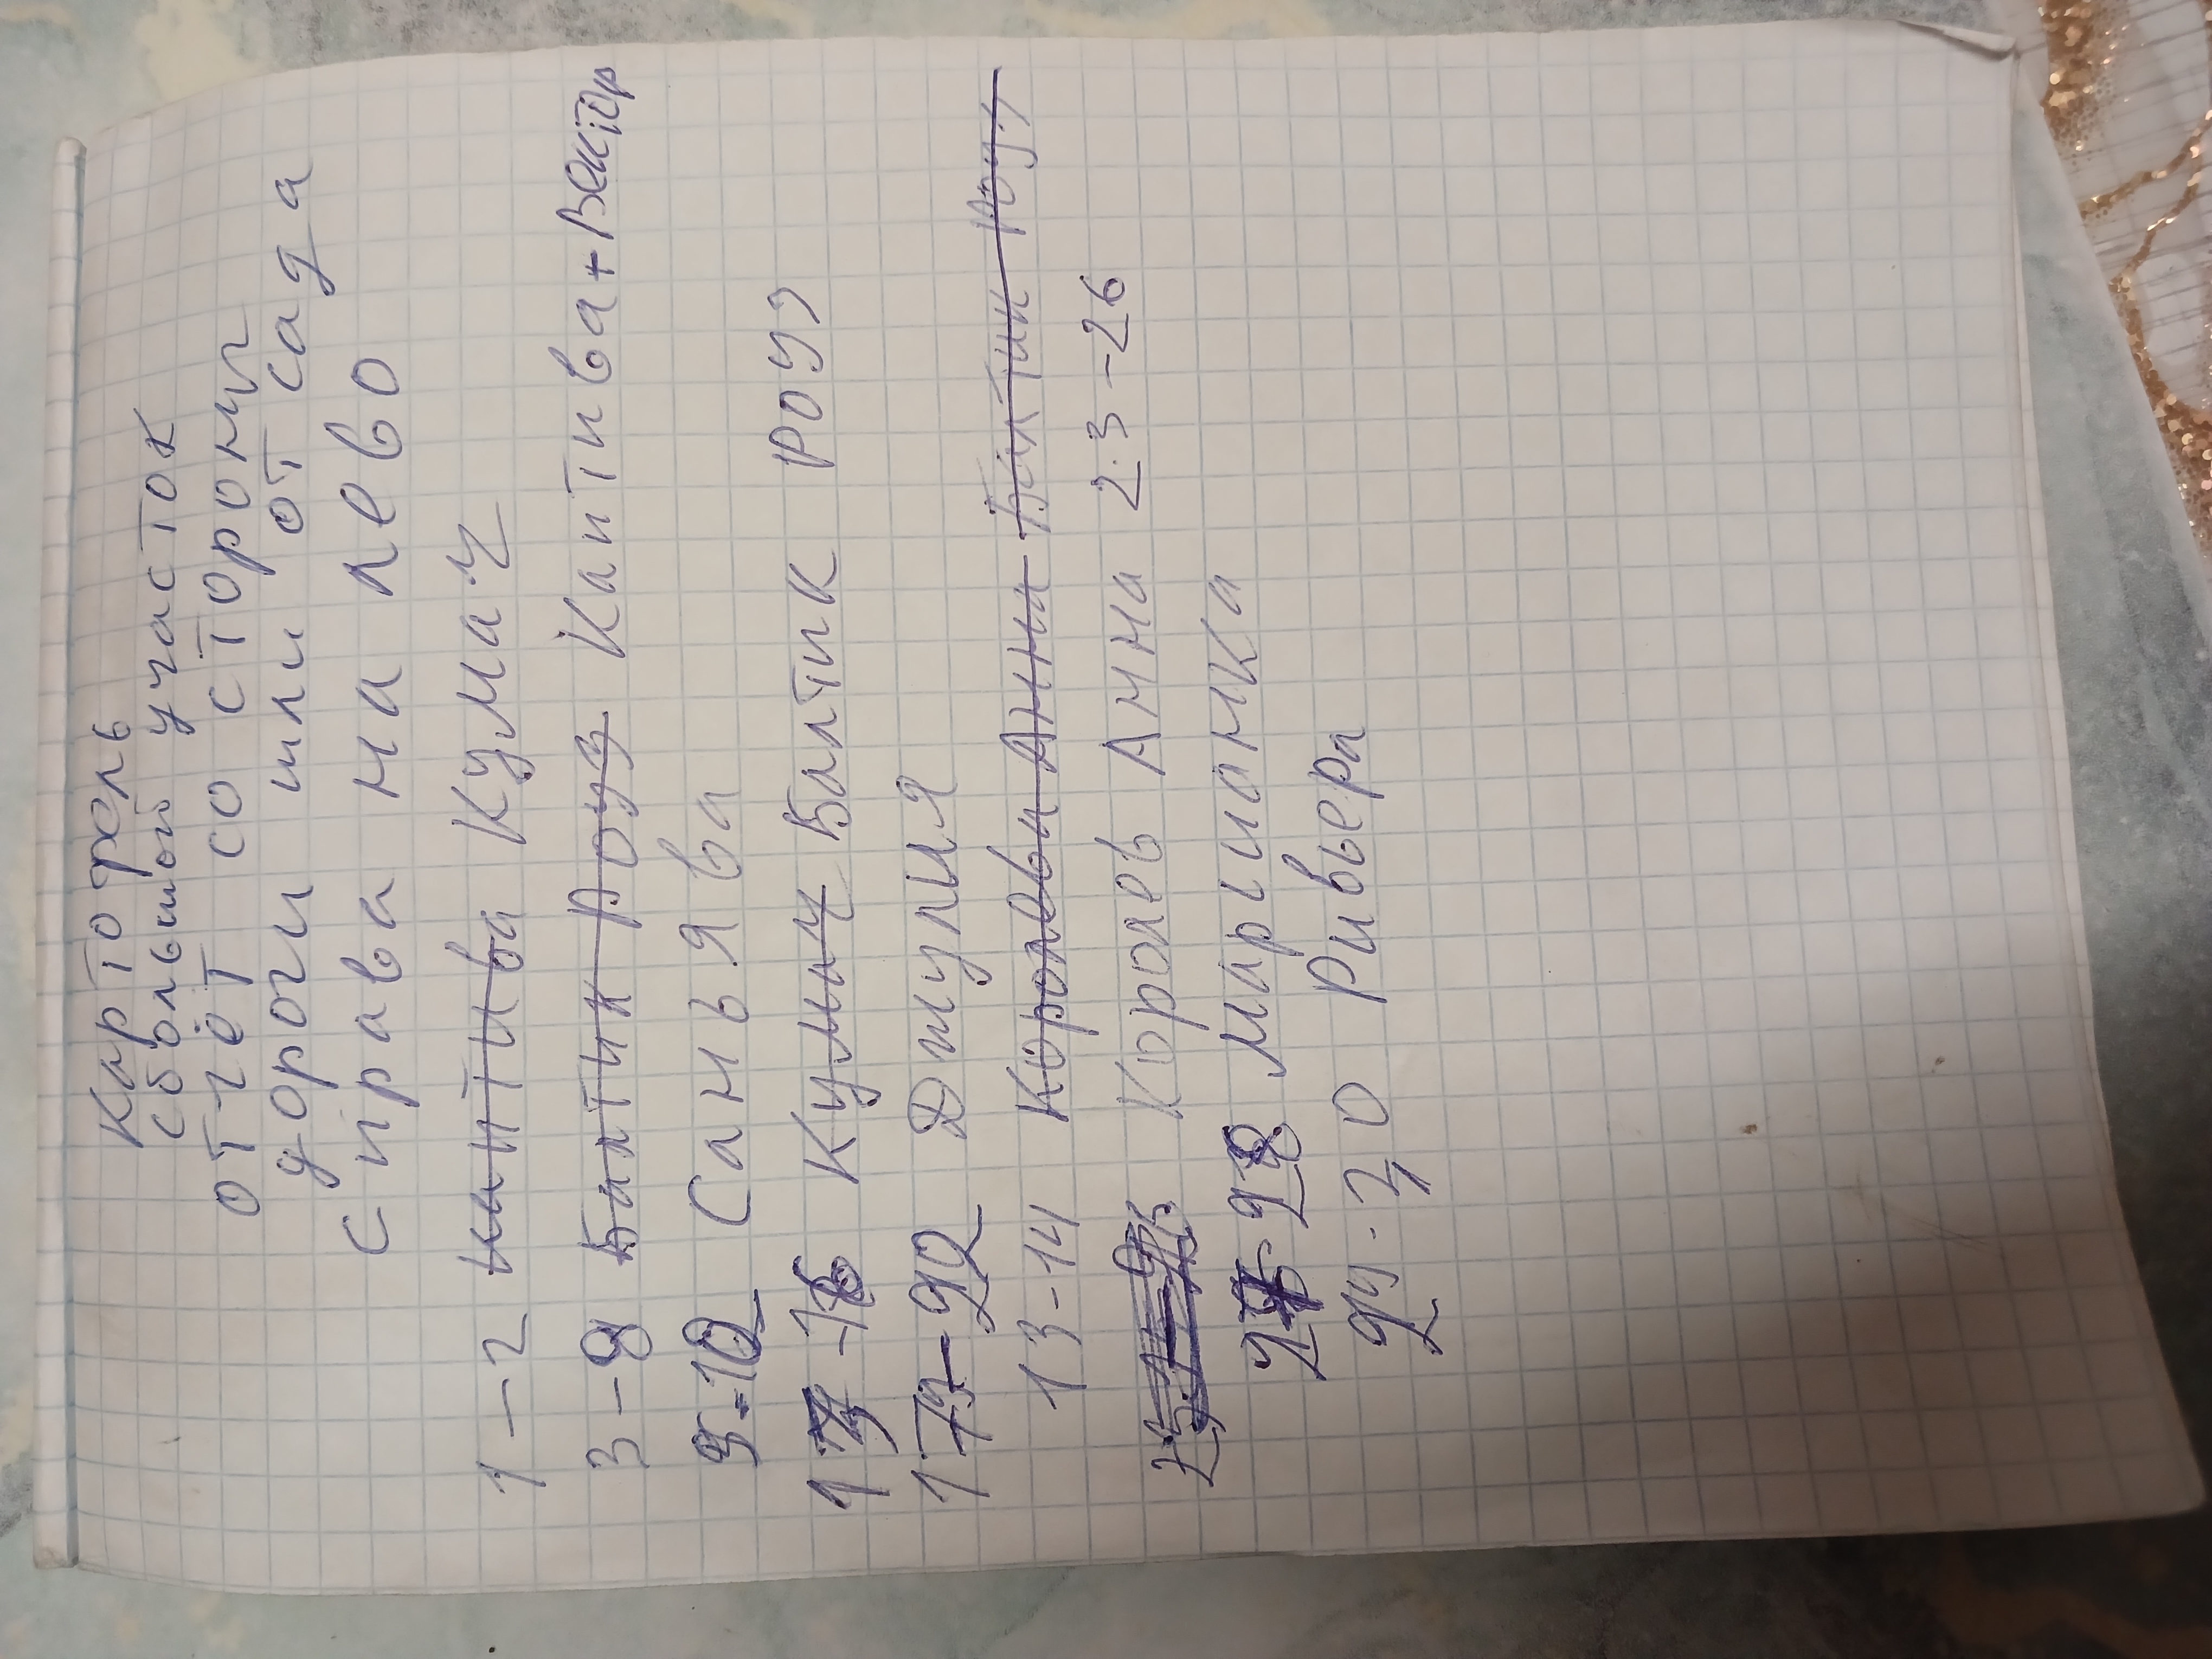 Картофель
большой участок
отчёт со стороны
дороги или от сада
с права на лево
1-2 Кума.ч
3-8 Балтик Роуз Каптива + Вектор
9-10 Саньява
Кумач Балтик роуз
17-92 Джулия
13-14 Королева Анна Балтик Роуз
Королев Анна 23-26
28 Марианка
Ривьера